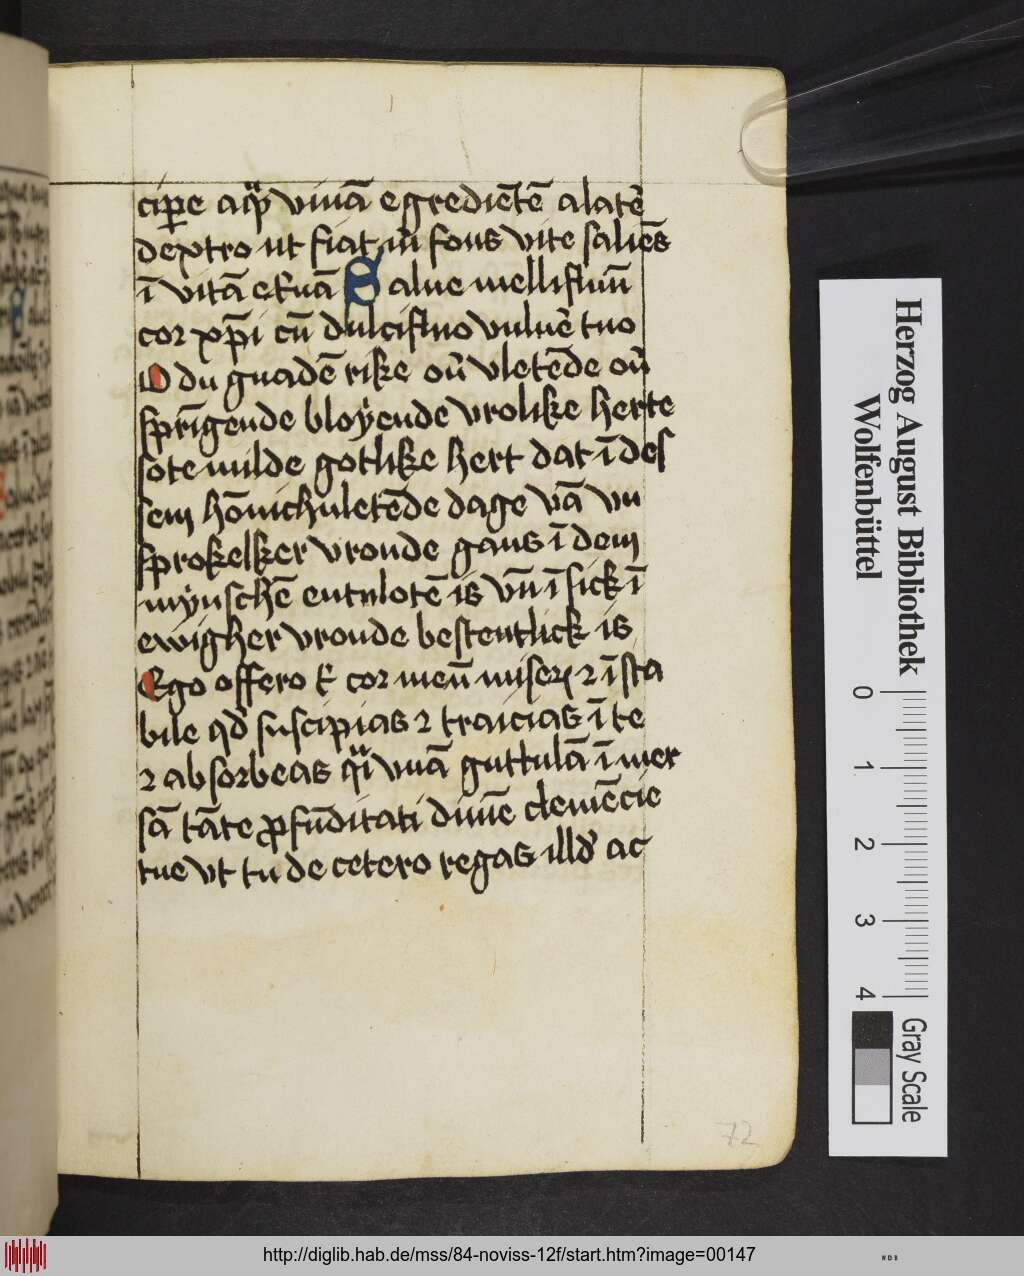 cip̱e aq̄ͣ viuā egrediētē a latē
dextro ut fiat m̄ fons vite saliēs
ī vitā et͛nā Salue mellifluū
cor xp̄i cū dulcifluo vulnē tuo
O du gnadē rike ov̄ vletēde ov̄
sprīgende bloẏende vrolike herte
sote milde gotlike hert dat ī des
sem hōnichuletēde dage vā vn
sprokelker vronde gans ī dem
mẏnschē entulotē is vn̄ ī sick ī
ewigher vronde bestentlick is
Ego offero t̄ cor meū miseꝝ ⁊ īsta
bile qd̄ suscipias ⁊ traicias ī te
⁊ absorbeas qͣi vnā guttulā ī mer
sā tāte ꝓfūditati diuīe clemēcie
tue vt tu de cetero regas illd̄ ac
72
Herzog August Bibliothek
Wolfenbüttel
0 1 2 3 4
Gray Scale
http://diglib.hab.de/mss/84-noviss-12f/start.htm?image=00147